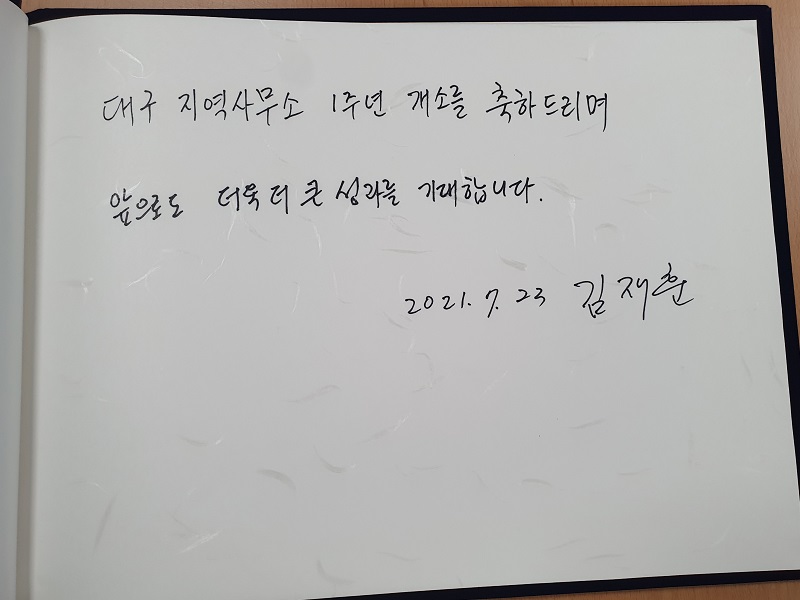 대구 지역사무소 1주년 개소를 축하드리며
앞으로도 더욱 더 큰 성과를 기대합니다.
2021. 7. 23 김재훈